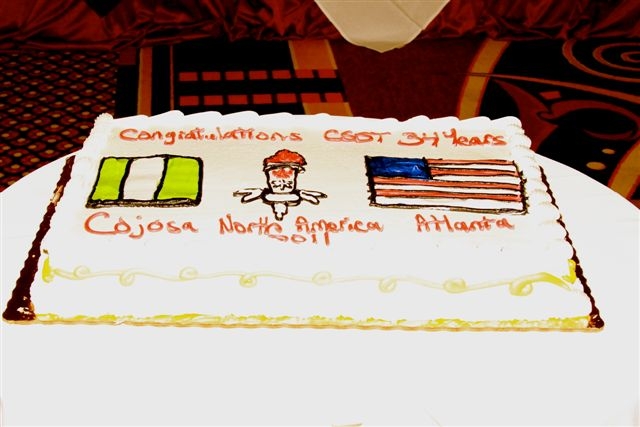 Congratulations CSOT 34 Years
Cojosa North America Atlanta
2011